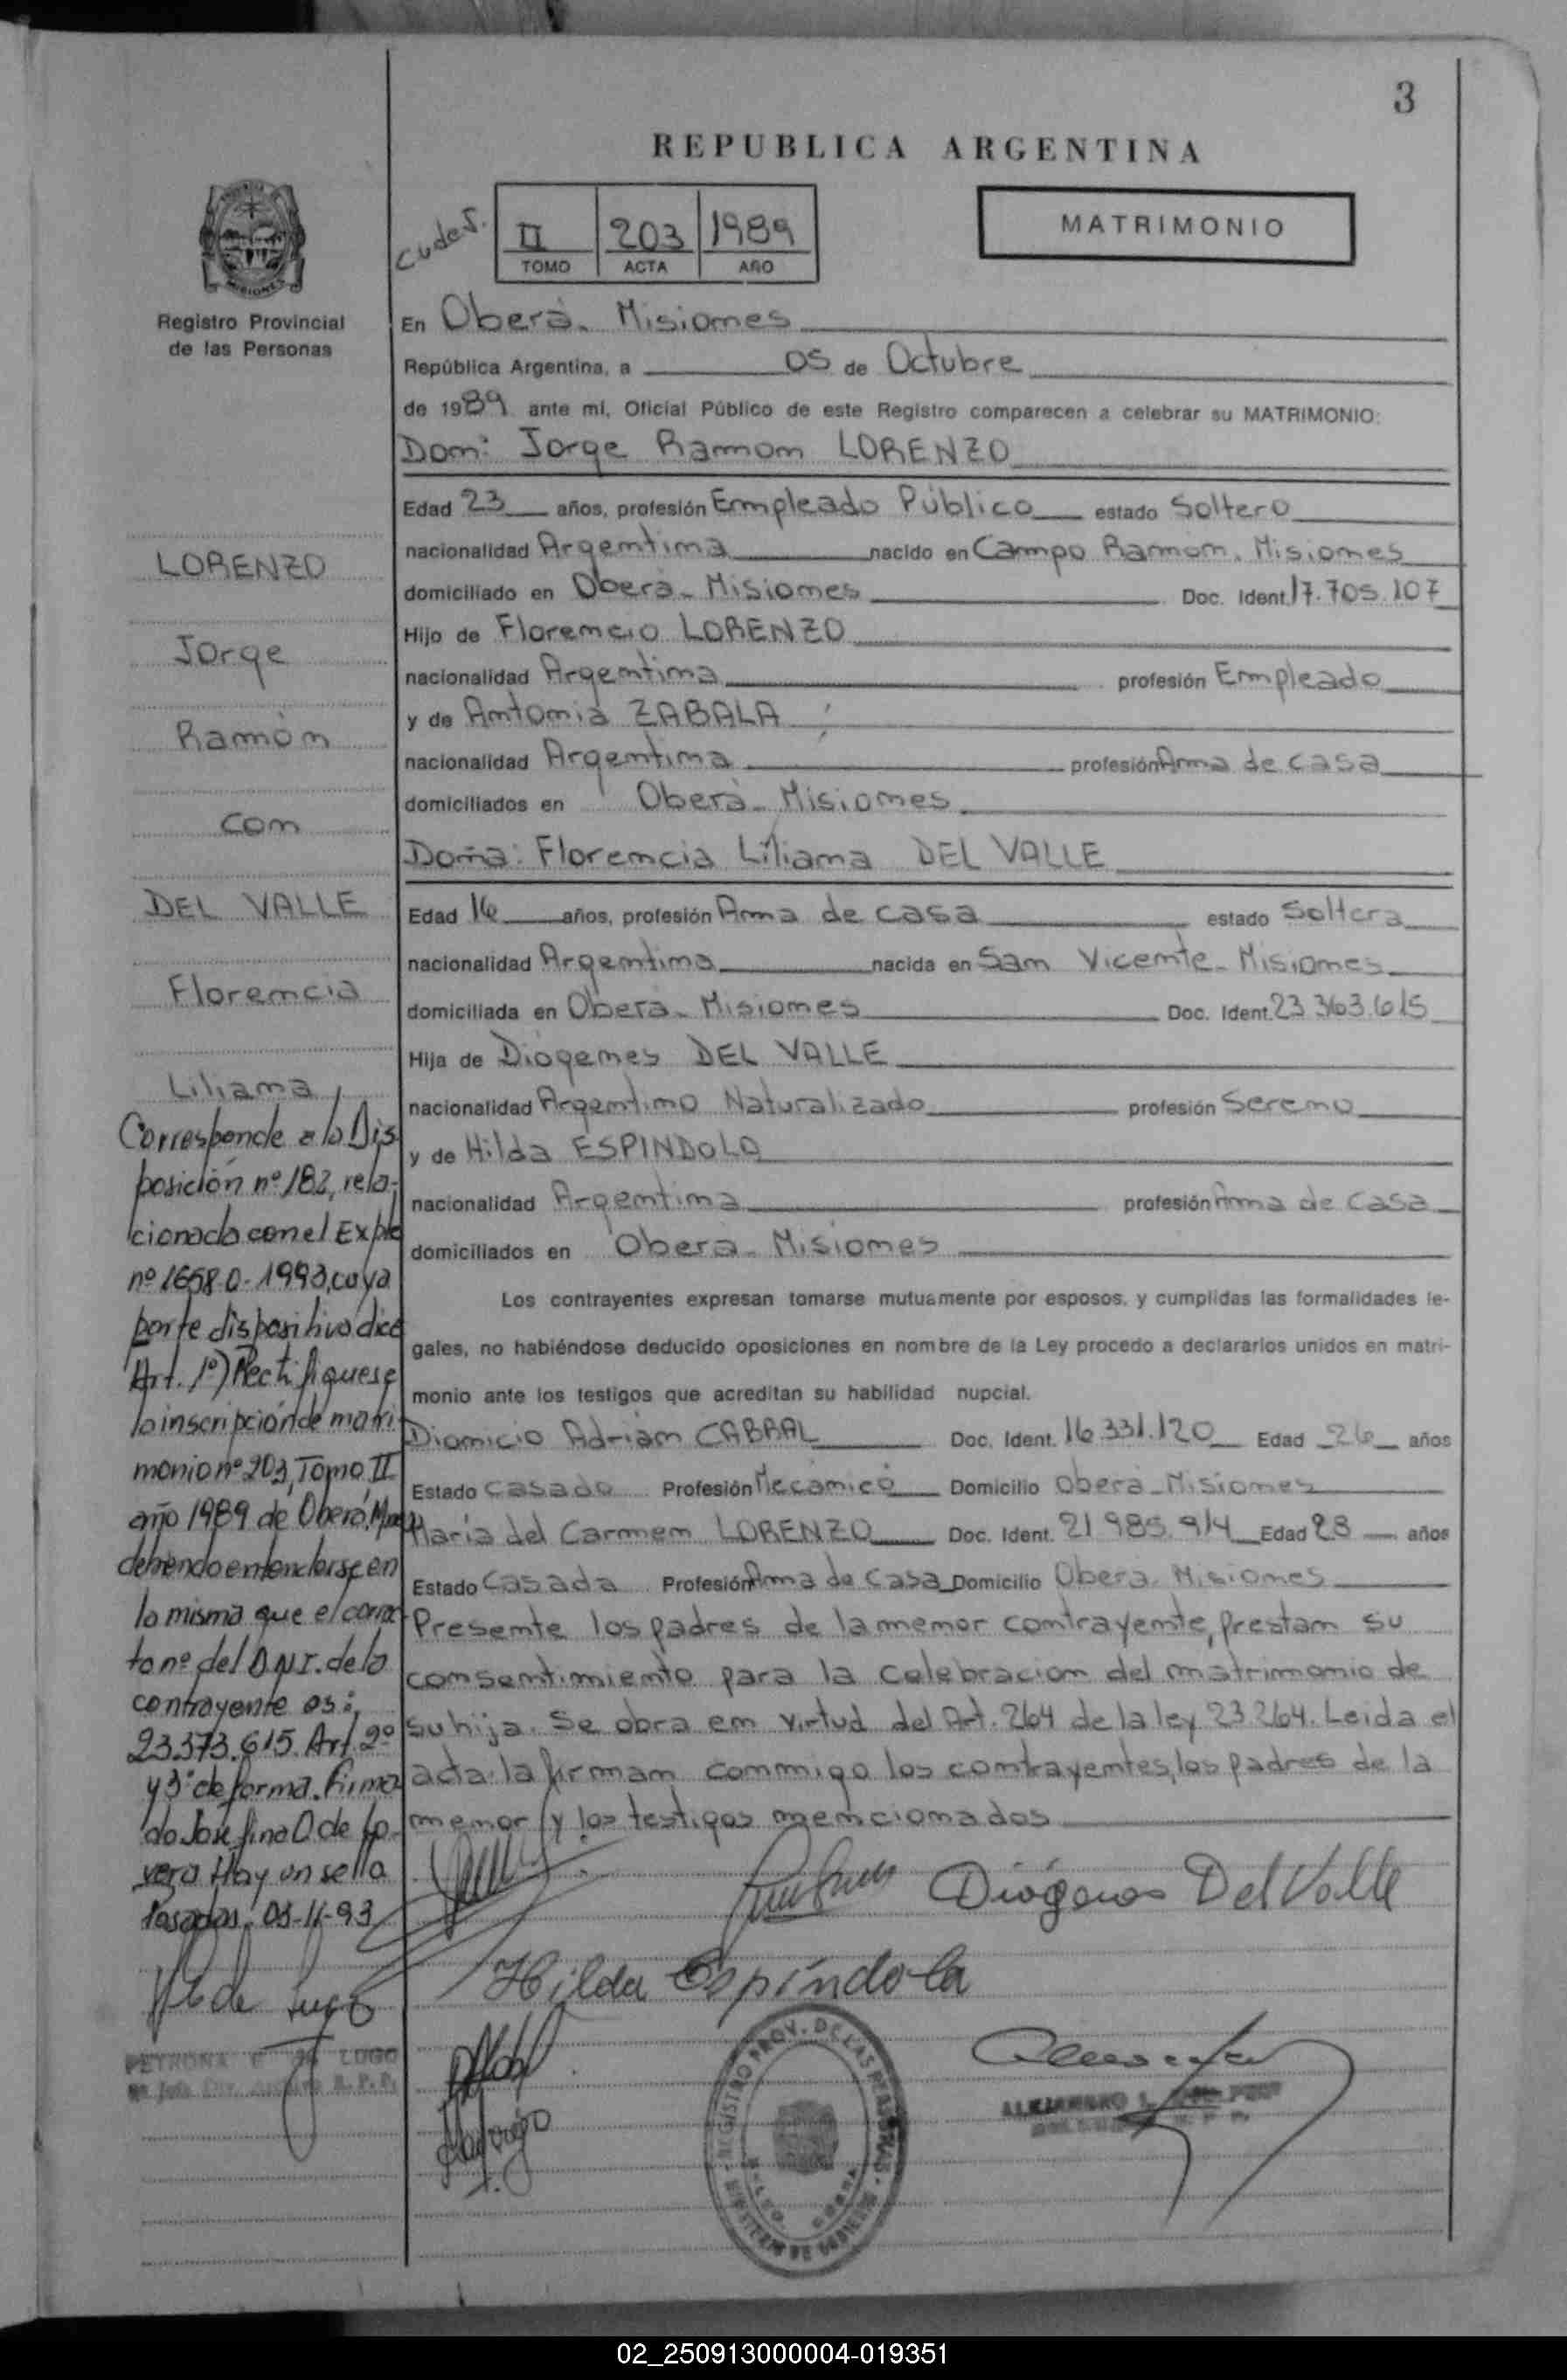 3
REPUBLICA ARGENTINA
II 203 1989
TOMO ACTA AÑO
MATRIMONIO
MISIONES
Registro Provincial
de las Personas
En Oberá - Misiones
República Argentina, a 05 de Octubre
de 1989 ante mí, Oficial Público de este Registro comparecen a celebrar su MATRIMONIO:
Don: Jorge Ramon LORENZO
Edad 23 años, profesión Empleado Público estado Soltero
nacionalidad Argentina nacido en Campo Ramón. Misiones
domiciliado en Oberá - Misiones Doc. Ident. 17.705.107
Hijo de Florencio LORENZO
nacionalidad Argentina profesión Empleado
y de Antonia ZABALA
nacionalidad Argentina profesión Ama de casa
domiciliados en Oberá - Misiones
Doña: Florencia Liliana DEL VALLE
Edad 16 años, profesión Ama de casa estado Soltera
nacionalidad Argentina nacida en San Vicente - Misiones
domiciliada en Oberá - Misiones Doc. Ident. 23.363.615
Hija de Diógenes DEL VALLE
nacionalidad Argentino Naturalizado profesión Sereno
y de Hilda ESPINDOLA
nacionalidad Argentina profesión Ama de casa
domiciliados en Oberá - Misiones
Los contrayentes expresan tomarse mutuamente por esposos, y cumplidas las formalidades le-
gales, no habiéndose deducido oposiciones en nombre de la Ley procedo a declararlos unidos en matri-
monio ante los testigos que acreditan su habilidad nupcial.
Dionicio Adrián CABRAL Doc. Ident. 16.331.120 Edad 26 años
Estado Casado Profesión Mecánico Domicilio Oberá - Misiones
María del Carmen LORENZO Doc. Ident. 21.985.914 Edad 28 años
Estado Casada Profesión Ama de Casa Domicilio Oberá - Misiones
Presente los padres de la menor contrayente, prestan su
consentimiento para la celebracion del matrimonio de
su hija. Se obra en virtud del Art. 264 de la ley 23.264. Leida el
acta la firman conmigo los contrayentes, los padres de la
menor y los testigos mencionados
LORENZO
Jorge
Ramón
con
DEL VALLE
Florencia
Liliana
Corresponde a la Dis
posición nº 182, rela-
cionada con el Expte
nº 1658-0-1993, cuya
parte dispositiva dice
Art. 1º) Rectifiquese
la inscripción de matri
monio nº 203, Tomo II
año 1989 de Oberá, Mnes
debiendo entenderse en
la misma que el correc
to nº del D.N.I. de la
contrayente es:
23.373.615. Art. 2º
y 3º de forma. Firma
do Josefina O de Lo
vera Hay un sello
Posadas, 03-11-93
Diógenes Del Valle
Hilda Espíndola
PETRONA E. DE LUGO
REGISTRO PROV. DE LAS PERSONAS
MINISTERIO DE GOBIERNO
ALEJANDRO
02_250913000004-019351